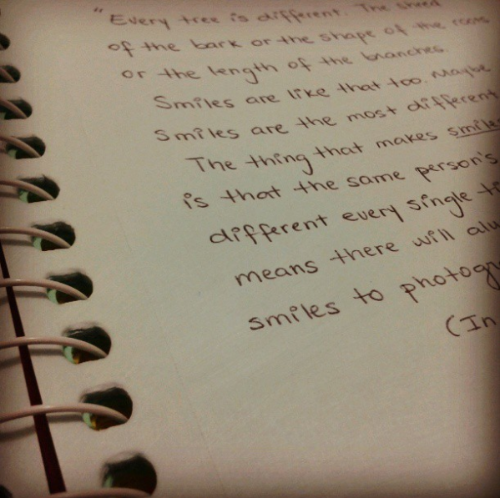 "Every tree is different. The
of the bark or the shape of the
or the length of the branches.
Smiles are like that too. Maybe
smiles are the most different
The thing that makes smiles
is that the same person's
different every single
means there will
smiles to
(In